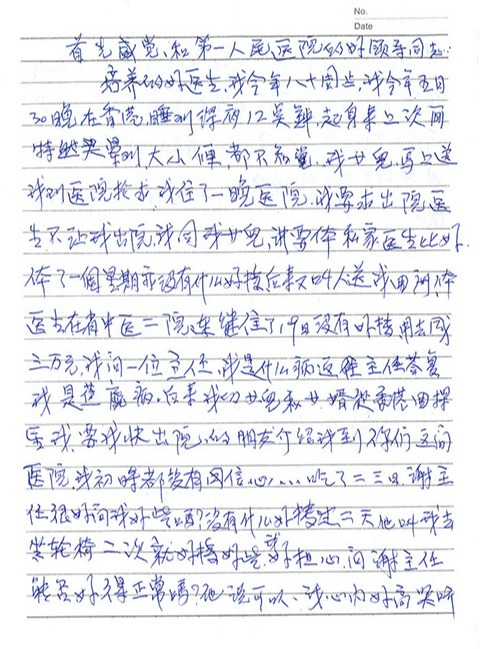 No.
Date
首先感党、和第一人民医院的好领导同志:
培养的好医生,我今年八十周岁,我今年五月
30晚在香港,睡到深夜12点钟,起身来上次网
特然晕倒,大小便,都不知觉,我女儿,马上送
我到医院抢求,我住了一晚医院,我要求出院医
生不让我出院,我同我女儿,讲要体私家医生比好.
体了一個星期亦没有什么好接后来又叫人送我回闸体
医生在省中医二院,连继住了19日没有好接用去成
三万元,我问一位主任,我是什么病这位主任答复
我是 病,后来我的女儿和女婿从香港回探
我,要我快出院,的朋友介绍我到你们这间
医院,我初時都没有网信心,...吃了二三日,谢主
任很好问我好些吗?没有什么好接过二天他叫我去
坐轮椅二次就好得好些,我好担心,问谢主任
能否好得正常吗?他说可以,我心内好高兴呀